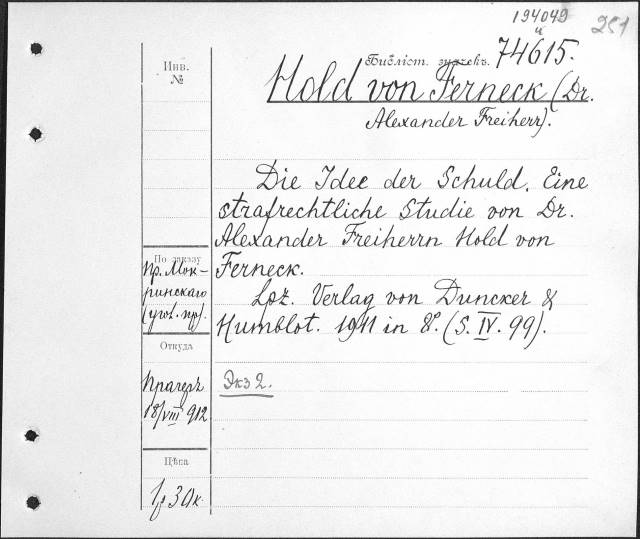 194049
и
251
Библіот. значекъ. 74615.
Инв.
№
Hold von Ferneck (Dr.
Alexander Freiherr).
Die Idee der Schuld. Eine
strafrechtliche Studie von Dr.
Alexander Freiherrn Hold von
Ferneck.
Lpz. Verlag von Duncker &
Humblot. 1911 in 8°. (S. IV. 99).
По заказу
пр. Мок-
ринскаго
(угол. пр).
Откуда
Прагеръ
18/VIII 912
Экз 2.
Цѣна
1р 30к.